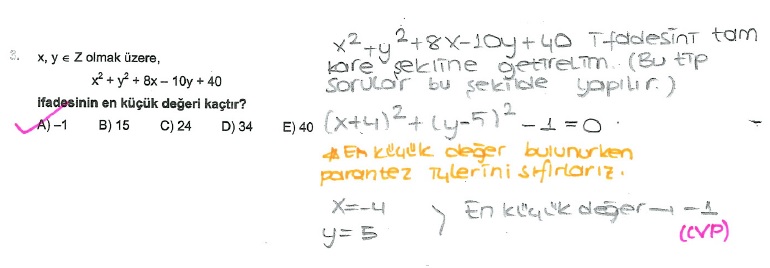 3. x, y ∈ Z olmak üzere,
x² + y² + 8x – 10y + 40
ifadesinin en küçük değeri kaçtır?
A) –1 B) 15 C) 24 D) 34 E) 40
x²+y²+8x-10y+40 ifadesini tam
kare şekline getirelim. (Bu tip
sorular bu şekilde yapılır.)
(x+4)²+(y-5)² -1=0.
* En küçük değer bulunurken
parantez içlerini sıfırlarız.
x=-4
y=5
} En küçük değer → -1
(CVP)